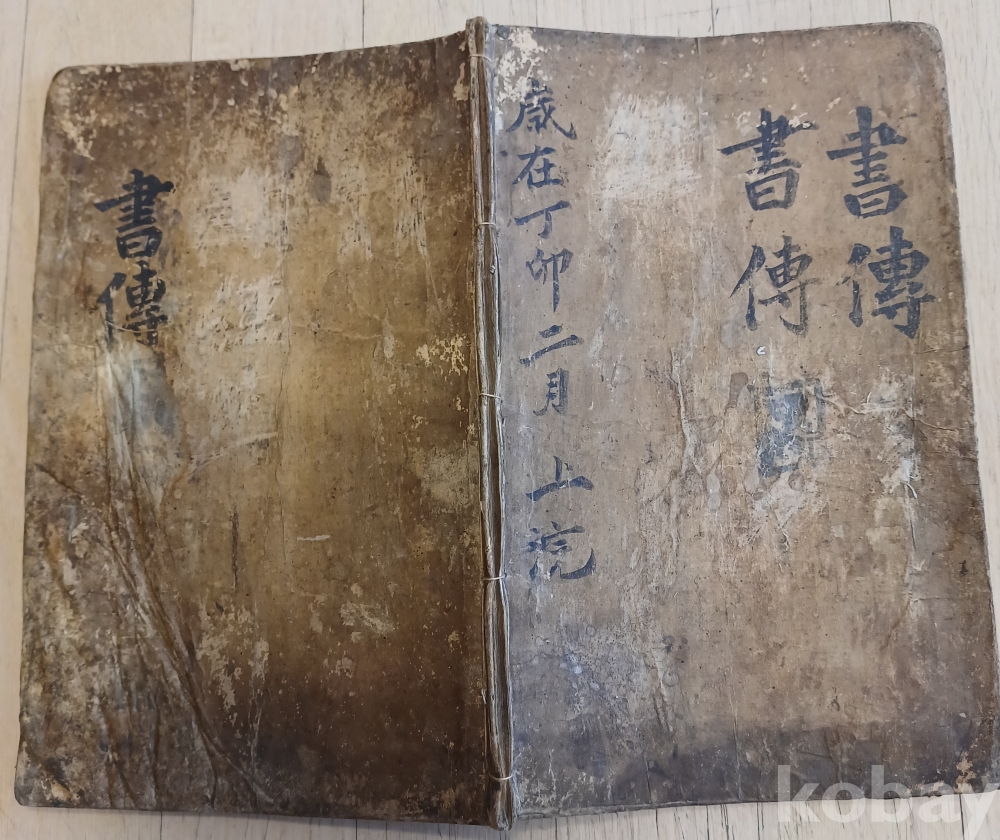 書傳
書傳
歲在丁卯二月 上浣
書傳
kobay